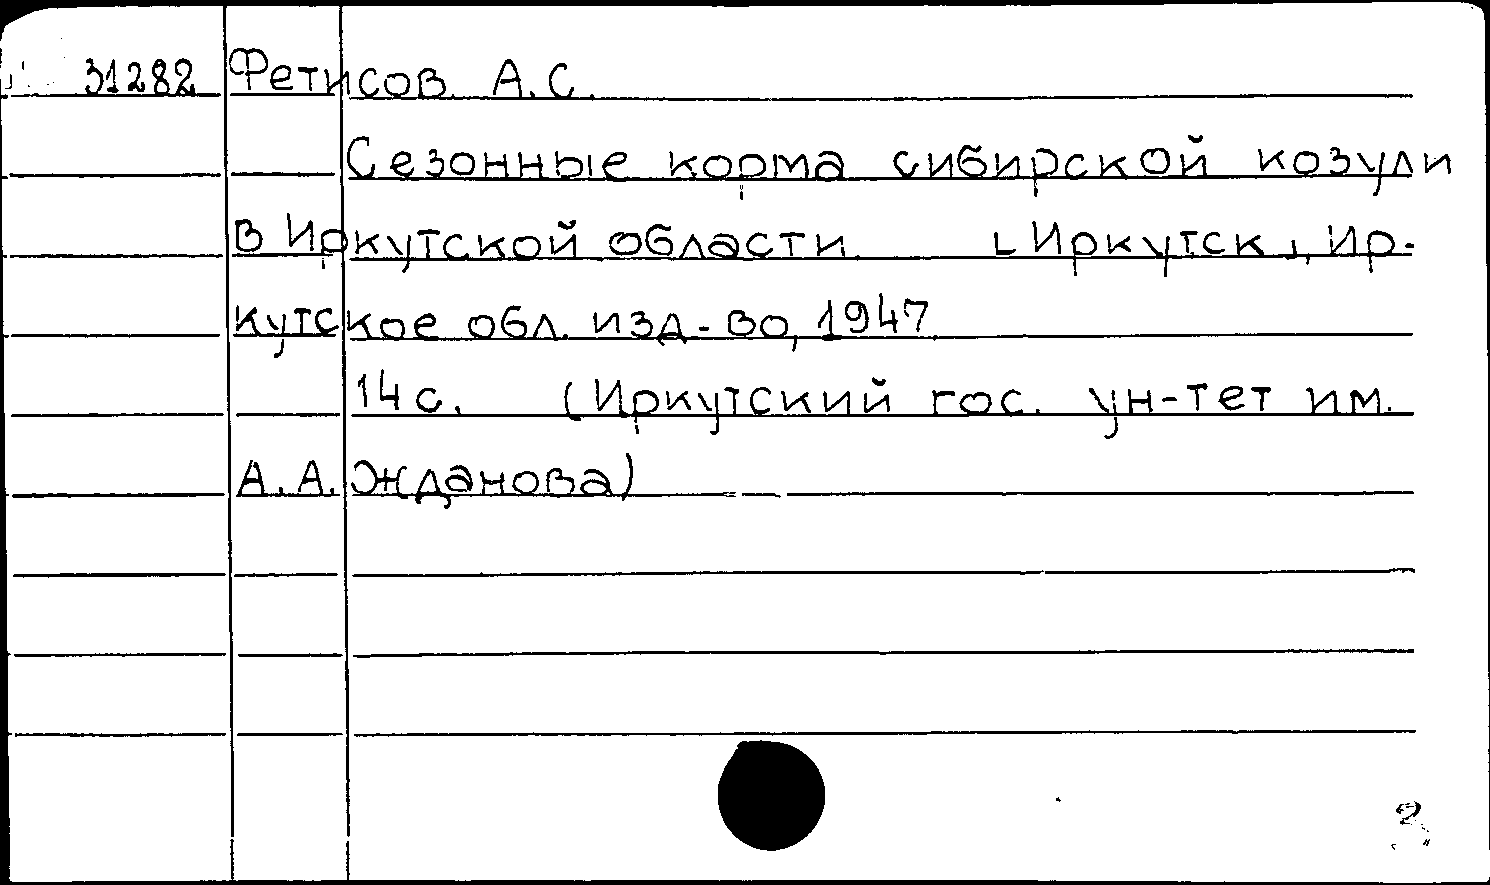 31282 Фетисов А.С.
Сезонные корма сибирской козули
в Иркутской области. [Иркутск], Ир-
кутское обл. изд-во, 1947
14 с. (Иркутский гос. ун-тет им.
А.А. Жданова)
2